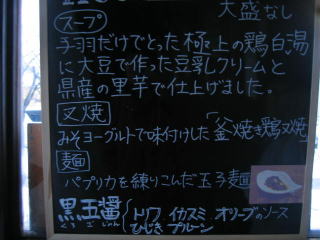 大盛なし
スープ
手羽だけでとった極上の鶏白湯
に大豆で作った豆乳クリームと
県産の里芋で仕上げました。
叉焼
みそヨーグルトで味付けした「釜焼き鶏叉焼」
麺
パプリカを練りこんだ玉子麺
黒玉醤 トリフ イカスミ オリーブのソース
くろ ご じゃん ひじき プルーン